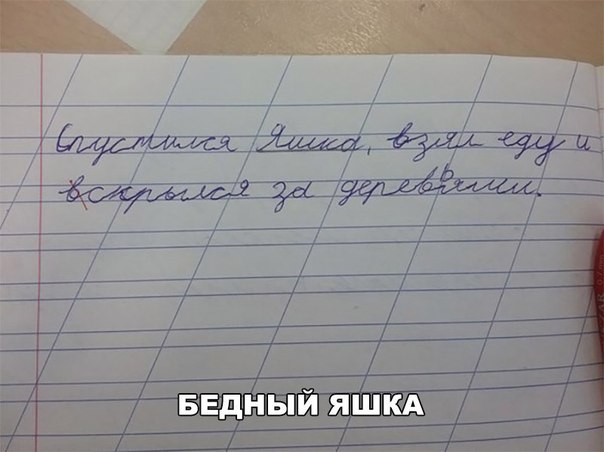 Спустился Яшка, взял еду и
вскрылся за деревьями.
БЕДНЫЙ ЯШКА